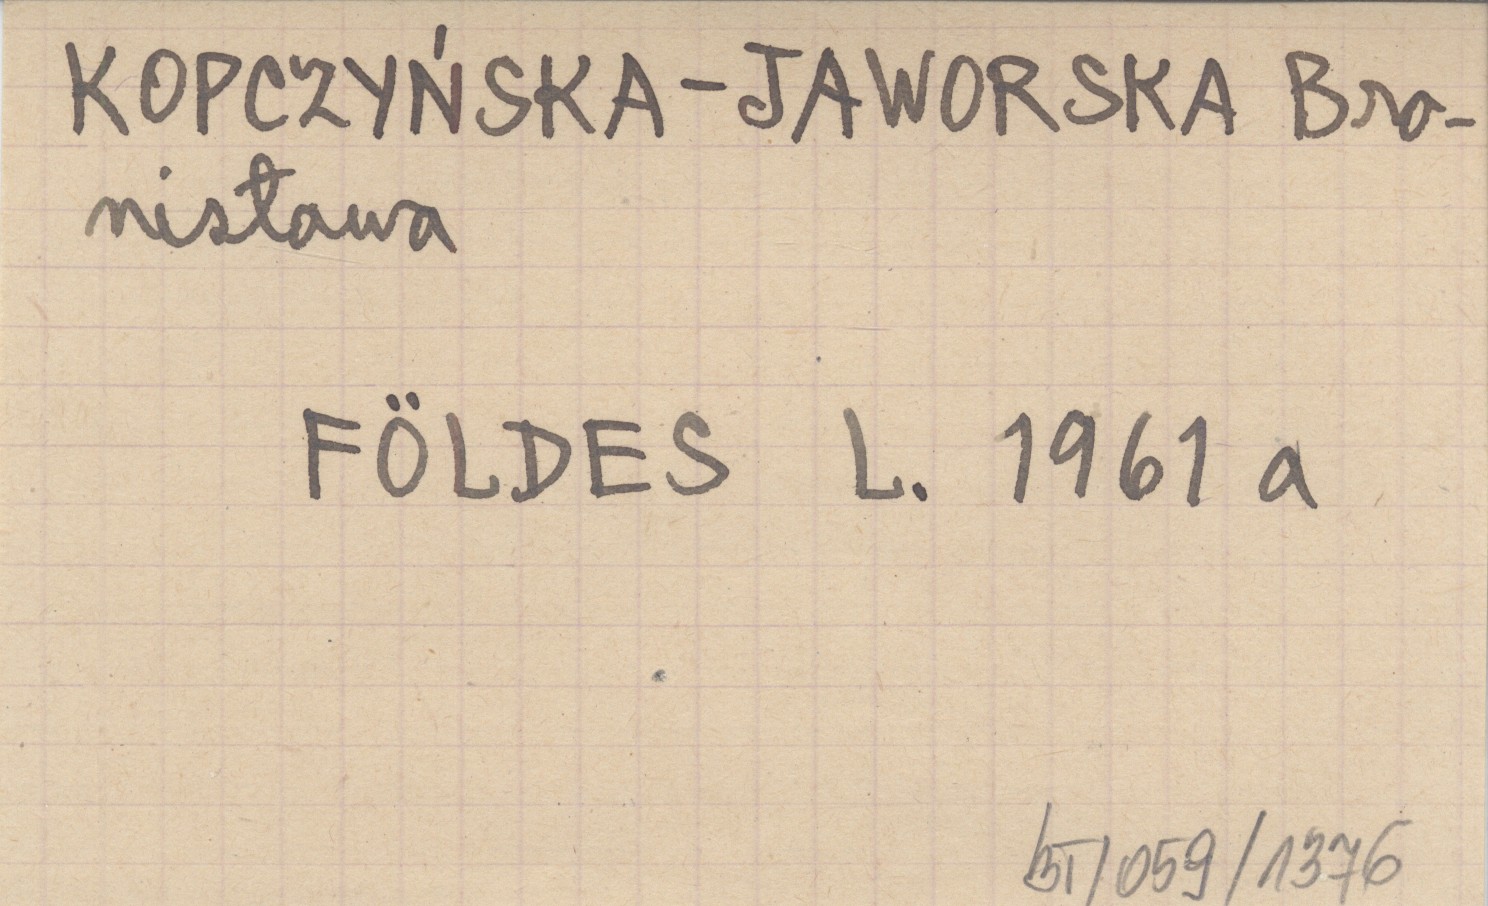 KOPCZYŃSKA-JAWORSKA Bro-
nisława
FÖLDES L. 1961 a
BT/059/1376